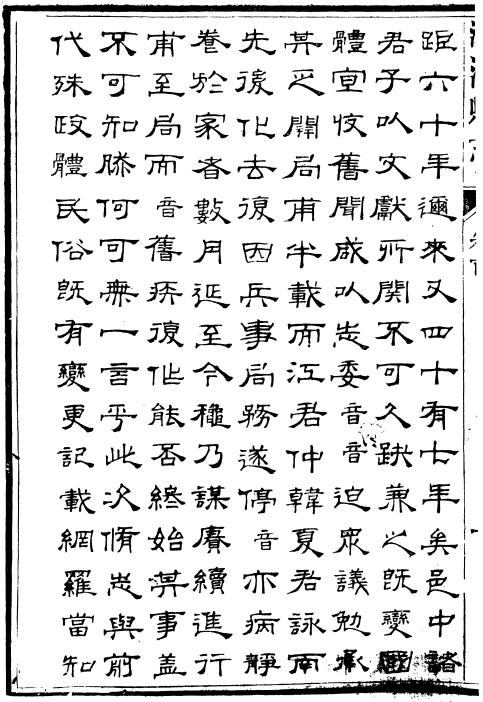 距六十年邇來又四十有七年矣邑中諸
君子以文獻所關不可久缺兼之既變國
體宜收舊聞咸以志委音音迫眾議勉承
其乏開局甫半載而江君仲韓夏君詠南
先後化去復因兵事局務遂停音亦病靜
養於家者數月延至今穐乃謀賡續進行
甫至局而音舊疾復作能否終始其事蓋
不可知然何可無一言乎此次脩志與前
代殊政體民俗既有變更記載網羅當知